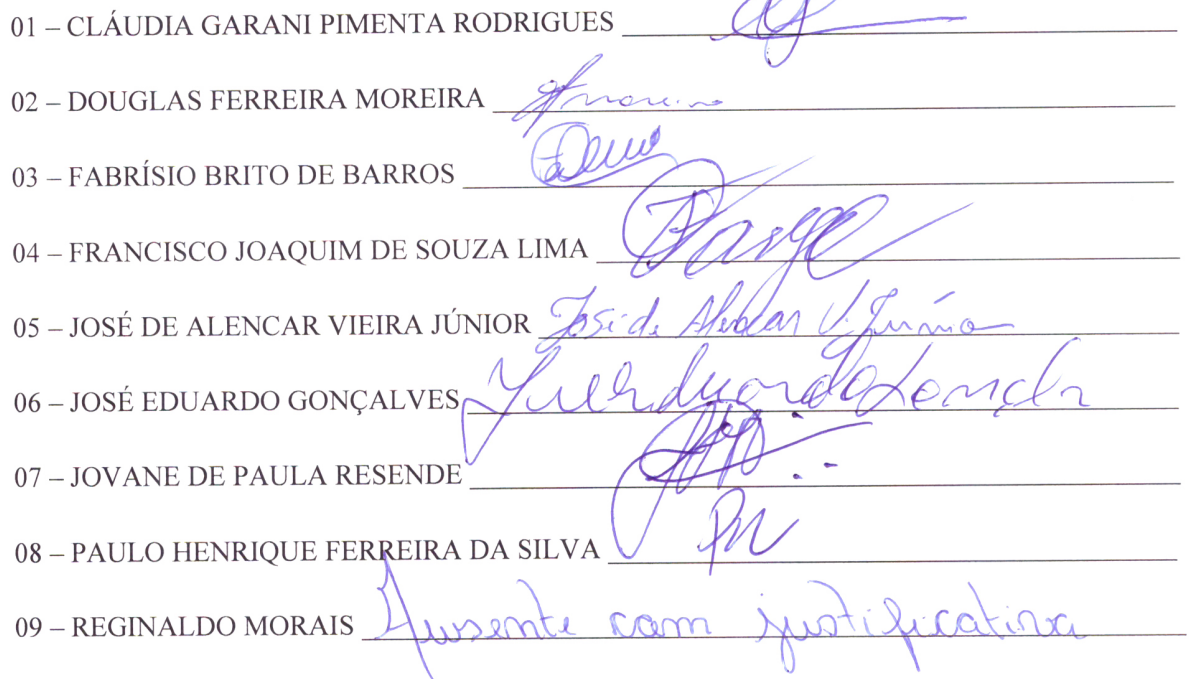 01 – CLÁUDIA GARANI PIMENTA RODRIGUES
02 – DOUGLAS FERREIRA MOREIRA
03 – FABRÍSIO BRITO DE BARROS
04 – FRANCISCO JOAQUIM DE SOUZA LIMA
05 – JOSÉ DE ALENCAR VIEIRA JÚNIOR José de Alencar V. Júnior
06 – JOSÉ EDUARDO GONÇALVES
07 – JOVANE DE PAULA RESENDE
08 – PAULO HENRIQUE FERREIRA DA SILVA
09 – REGINALDO MORAIS Ausente com justificativa